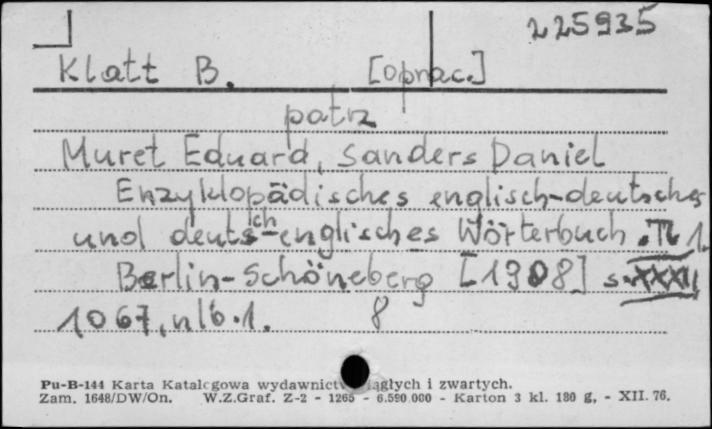 225935
Klatt B. [oprac.]
patrz
Muret Eduard, Sanders Daniel
Enzyklopädisches englisch-deutsches
und deutsch-englisches Wörterbuch. Tl 1.
Berlin-Schöneberg [1908] s. XXXII,
1067, nlb. 1. 8
Pu-B-144 Karta Katalogowa wydawnictw ciągłych i zwartych.
Zam. 1648/DW/On. W.Z.Graf. Z-2 - 1265 - 6.590.000 - Karton 3 kl. 180 g, - XII. 76.